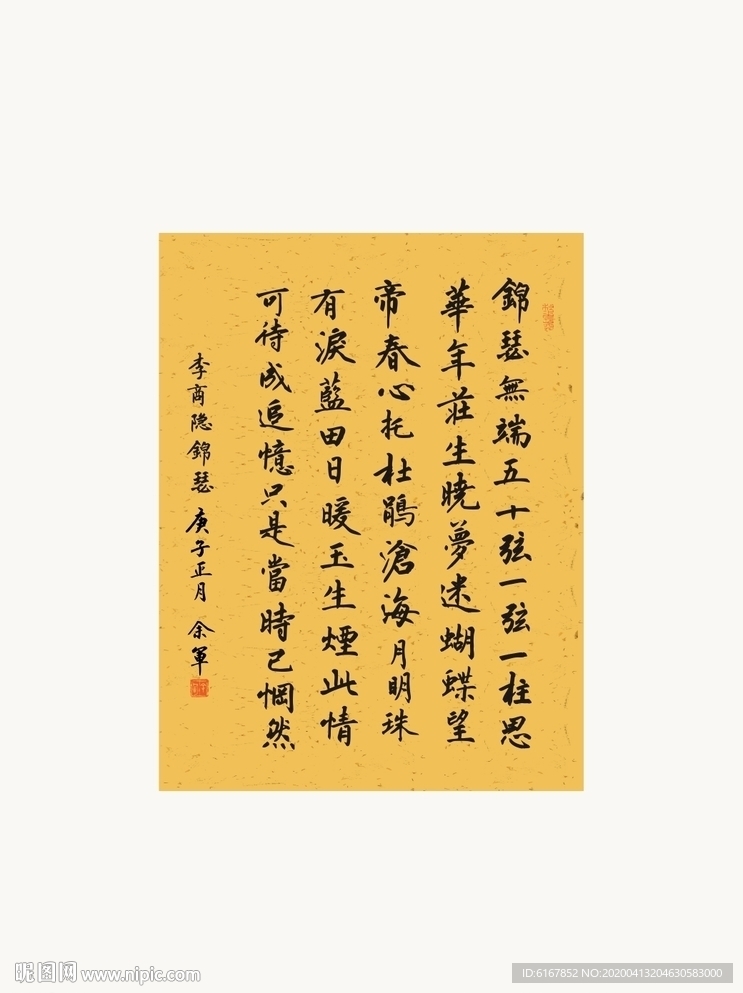 錦瑟無端五十弦一弦一柱思
華年莊生曉夢迷蝴蝶望
帝春心托杜鵑滄海月明珠
有淚藍田日暖玉生煙此情
可待成追憶只是當時已惘然
李商隐錦瑟 庚子正月 余軍
昵图网 www.nipic.com
ID:6167852 NO:20200413204630583000